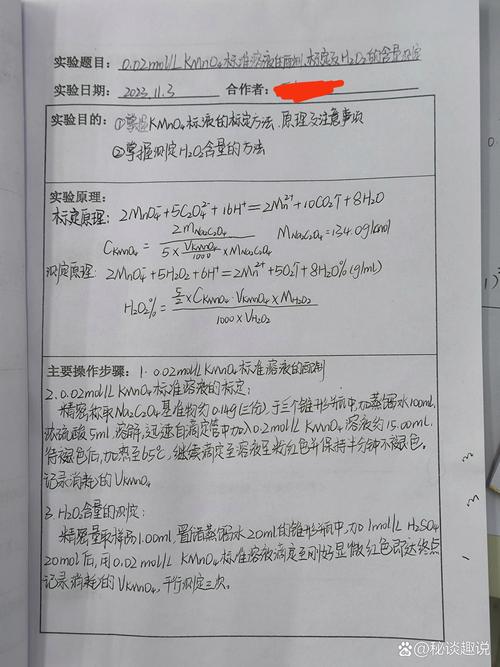 实验题目: 0.02mol/L KMnO₄标准溶液的配制、标定及H₂O₂的含量测定
实验日期: 2023.11.3 合作者:
实验目的: ①掌握KMnO₄标液的标定方法、原理及注意事项
②掌握测定H₂O₂含量的方法
实验原理:
标定原理: 2MnO₄⁻+5C₂O₄²⁻+16H⁺=2Mn²⁺+10CO₂↑+8H₂O
C_KMnO₄ = 2m_Na₂C₂O₄ / (5×V_KMnO₄/1000×M_Na₂C₂O₄) M_Na₂C₂O₄=134.0g/mol
测定原理: 2MnO₄⁻+5H₂O₂+6H⁺=2Mn²⁺+5O₂↑+8H₂O%(g/ml)
H₂O₂% = (5/2×C_KMnO₄·V_KMnO₄×M_H₂O₂) / (1000×V_H₂O₂)
主要操作步骤: 1. 0.02mol/L KMnO₄标准溶液的配制
2. 0.02mol/L KMnO₄标准溶液的标定:
精密称取Na₂C₂O₄基准物约0.14g(三份), 于三个锥形瓶中, 加蒸馏水100ml,
浓硫酸5ml溶解, 迅速自滴定管中加入0.2mol/L KMnO₄溶液约15.00ml,
待褪色后, 加热至65℃, 继续滴定至溶液呈粉红色并保持半分钟不褪色。
记录消耗的V_KMnO₄
3. H₂O₂含量的测定:
精密量取样品1.00ml 置储蒸馏水20ml的锥形瓶中, 加1mol/L H₂SO₄
20ml后, 用0.02mol/L KMnO₄标准溶液滴定至刚好显微红色即达终点
记录消耗的V_KMnO₄, 平行测定三次。
@秘谈趣说